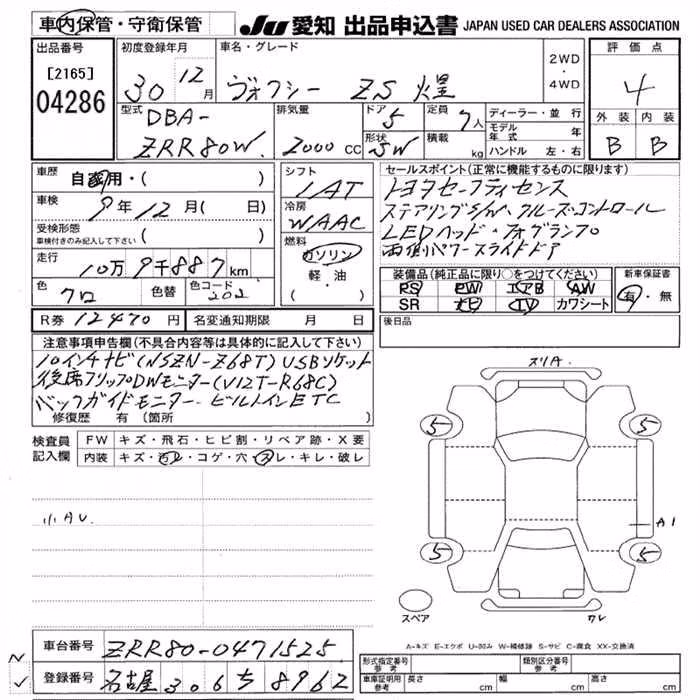 車内保管・守衛保管 JU 愛知 出品申込書 JAPAN USED CAR DEALERS ASSOCIATION
出品番号 初度登録年月 車名・グレード 2WD・4WD 評価点
[2165] 30 12月 ヴォクシー ZS 煌 4
04286
型式 DBA-ZRR80W 排気量 2000cc ドア 5 定員 7人 ディーラー・並行 外装 内装
形状 SW 積載 kg モデル年式 年 B B
ハンドル 左・右
車歴 自家用・( ) シフト IAT セールスポイント(正常に機能するものに限り)
車検 9年12月( 日) 冷房 WAAC トヨタセーフティセンス
受検形態 車検付きのみ記入して下さい ( ) ステアリングS/W・クルーズコントロール
走行 10万9千887km 燃料 ガソリン・軽・油・( ) LEDヘッド・フォグランプ
両側パワースライドドア
色 クロ 色替 色コード 202 装備品(純正品に限り○をつけてください) 新車保証書
PS PW エアB AW 有・無
SR カワシート
R券 12470円 名変通知期限 月 日 後日品
注意事項申告欄(不具合内容等は具体的に記入して下さい)
10インチナビ(NSZN-Z68T)USBソケット
後席フリップDWモニター(V12T-R68C)
バックガイドモニター・ビルトインETC
修復歴 有 (箇所 )
スリA
5 5
検査員記入欄 FW キズ・飛石・ヒビ割・リペア跡・X要
内装 キズ・汚レ・コゲ・穴・スレ・キレ・破レ
小AU
A1
5 5
スペア
ワレ
A-キズ E-エクボ U-凹み W-補修跡 S-サビ C-腐食 XX-交換済
車台番号 ZRR80-0471525
登録番号 名古屋 306 ち 8962
形式指定番号 参考 類別区分番号 参考
車庫証明用 参考 長さ cm 幅 cm 高さ cm